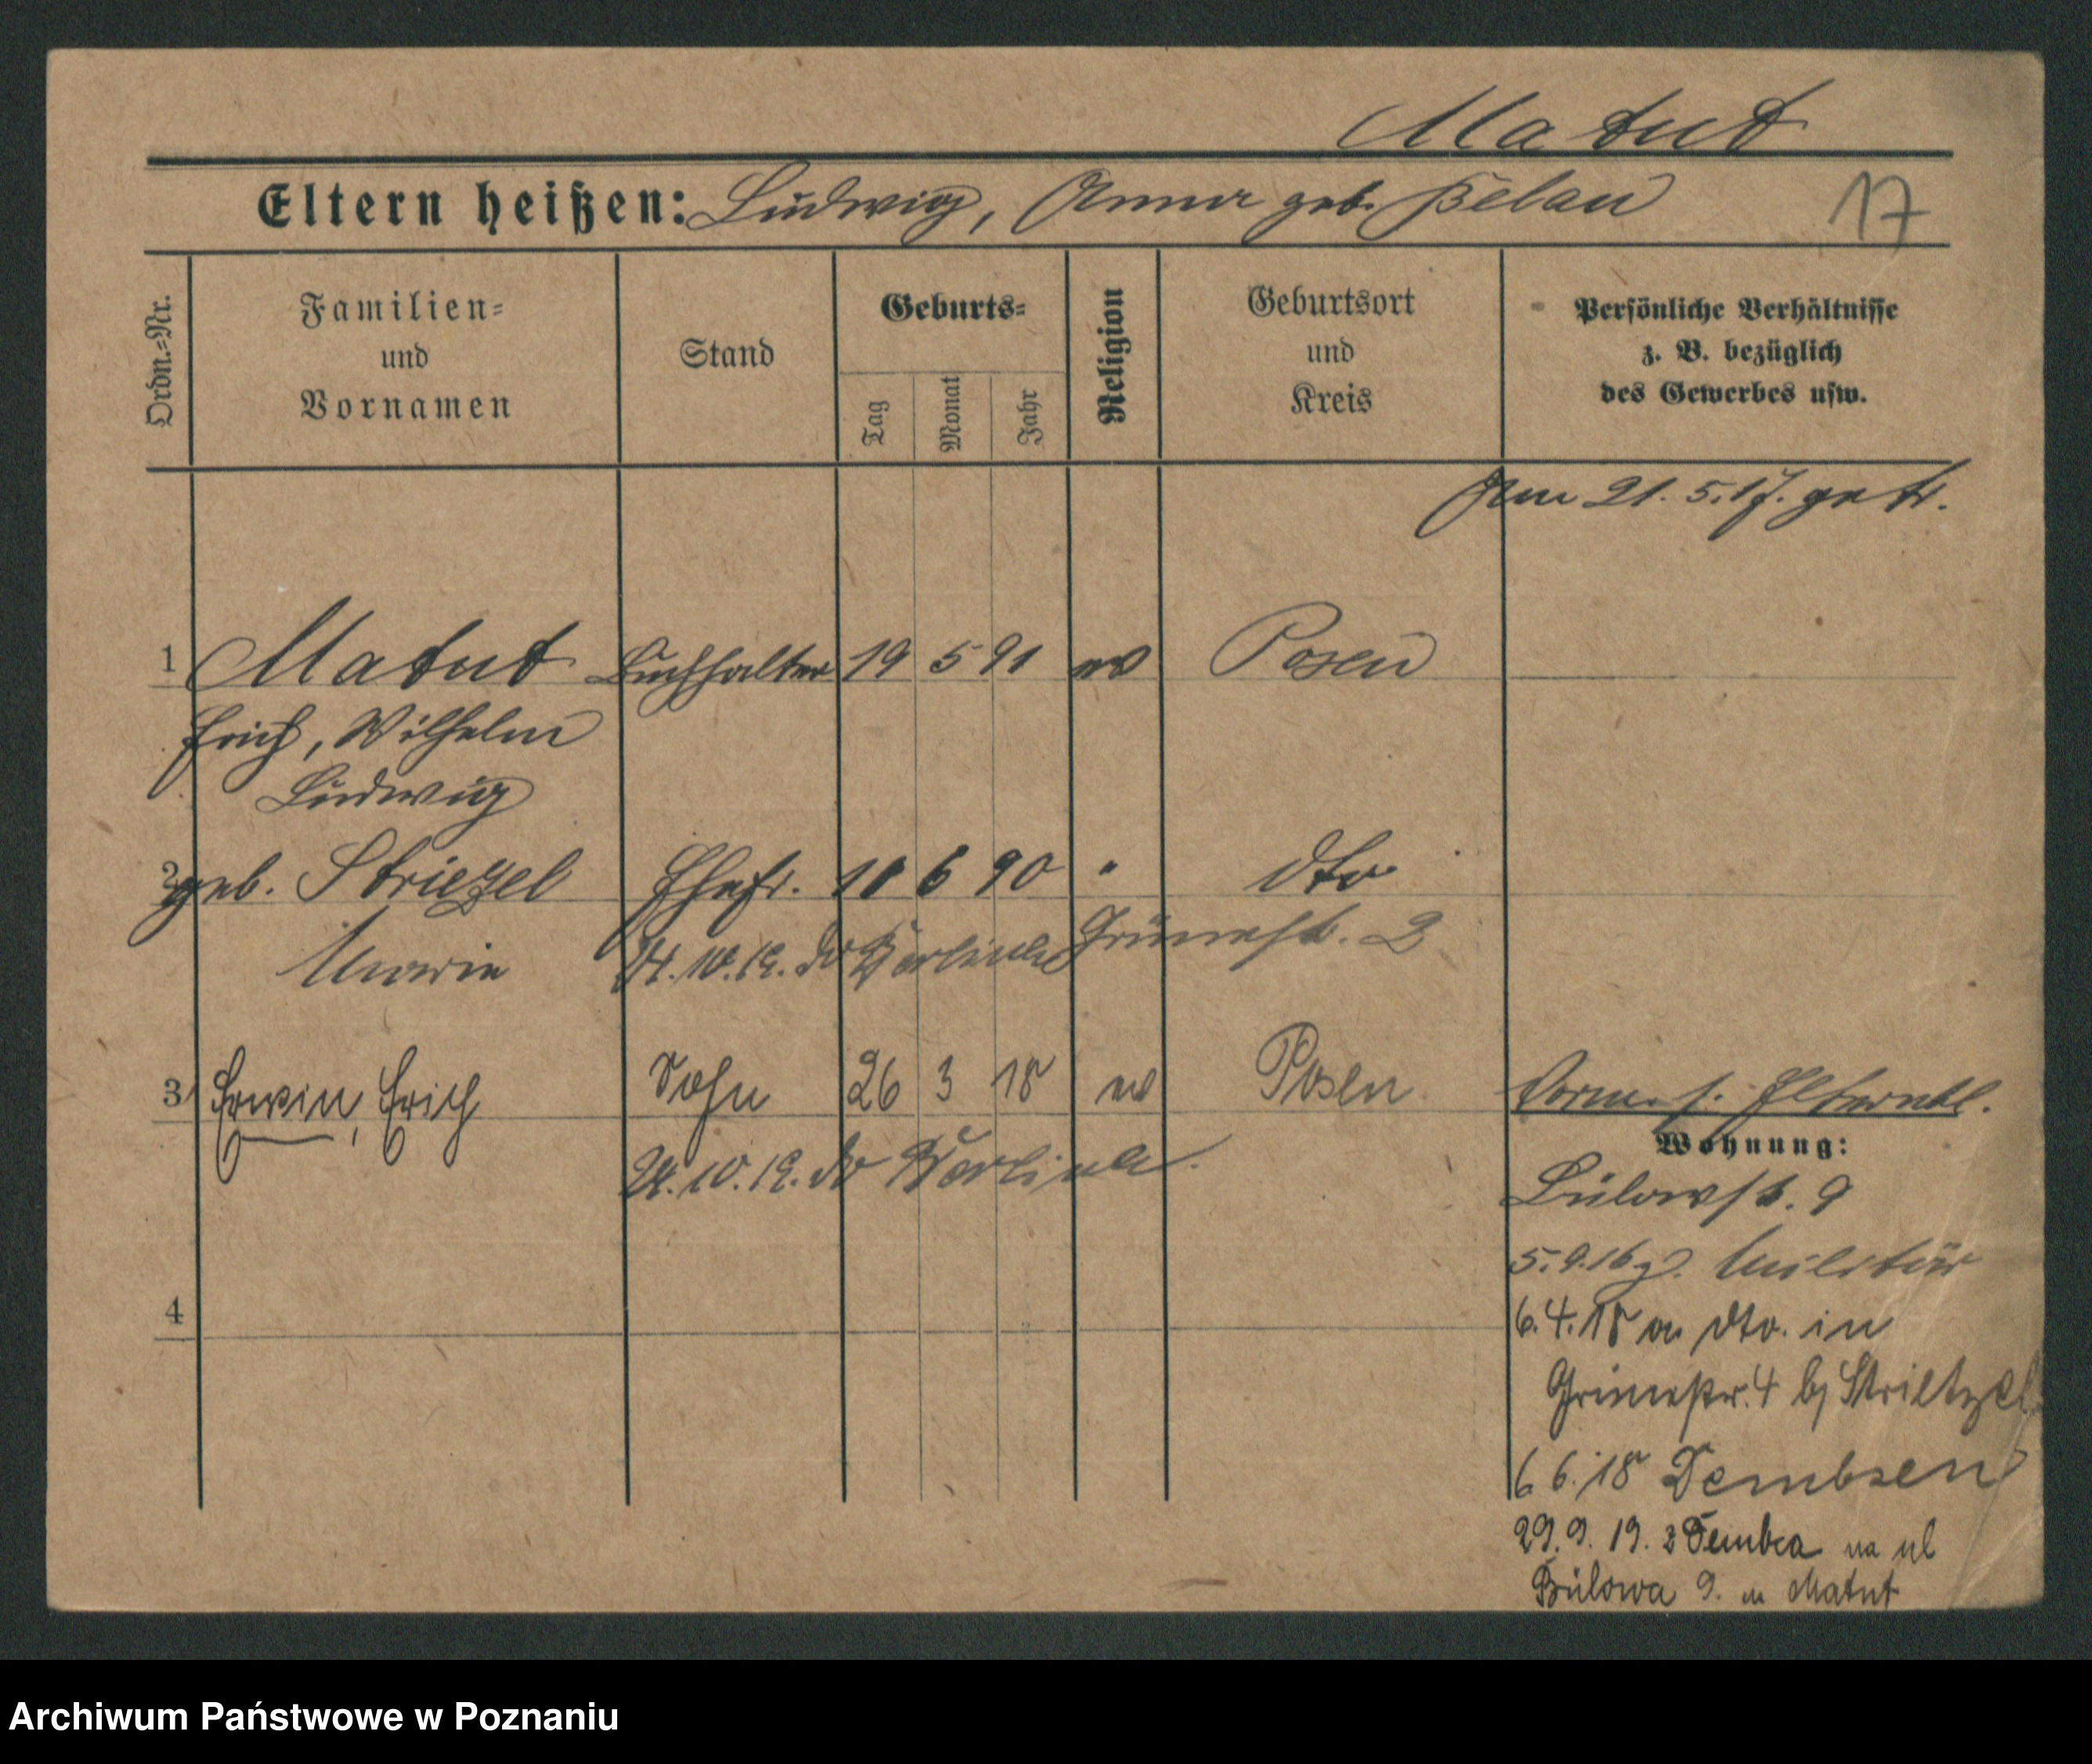 Matut
Eltern heißen: Ludwig, Anna geb. Belau 17
Ordn.=Nr. Familien= und Vornamen Stand Geburts= Tag Monat Jahr Religion Geburtsort und Kreis Persönliche Verhältnisse z. B. bezüglich des Gewerbes usw.
Am 21.5.17. getr.
1 Matut Buchhalter 19 5 91 ev Posen
Erich, Wilhelm
Ludwig
2 geb. Striezel Ehefr. 11 6 90 " dto
Maria 24.10.19. Berlin Grünestr. 2
3 Erwin, Erich Sohn 26 3 18 ev Posen
Wohnung:
24.10.19. Berlin
Bülowstr. 9
5.9.16 z. Militär
4
6.4.18 a dto. in
Grünestr. 4 b/ Strietzel
6 6. 18 Dembsen
29.9.19. z Dembca na ul
Bülowa 9. u Matut
Archiwum Państwowe w Poznaniu